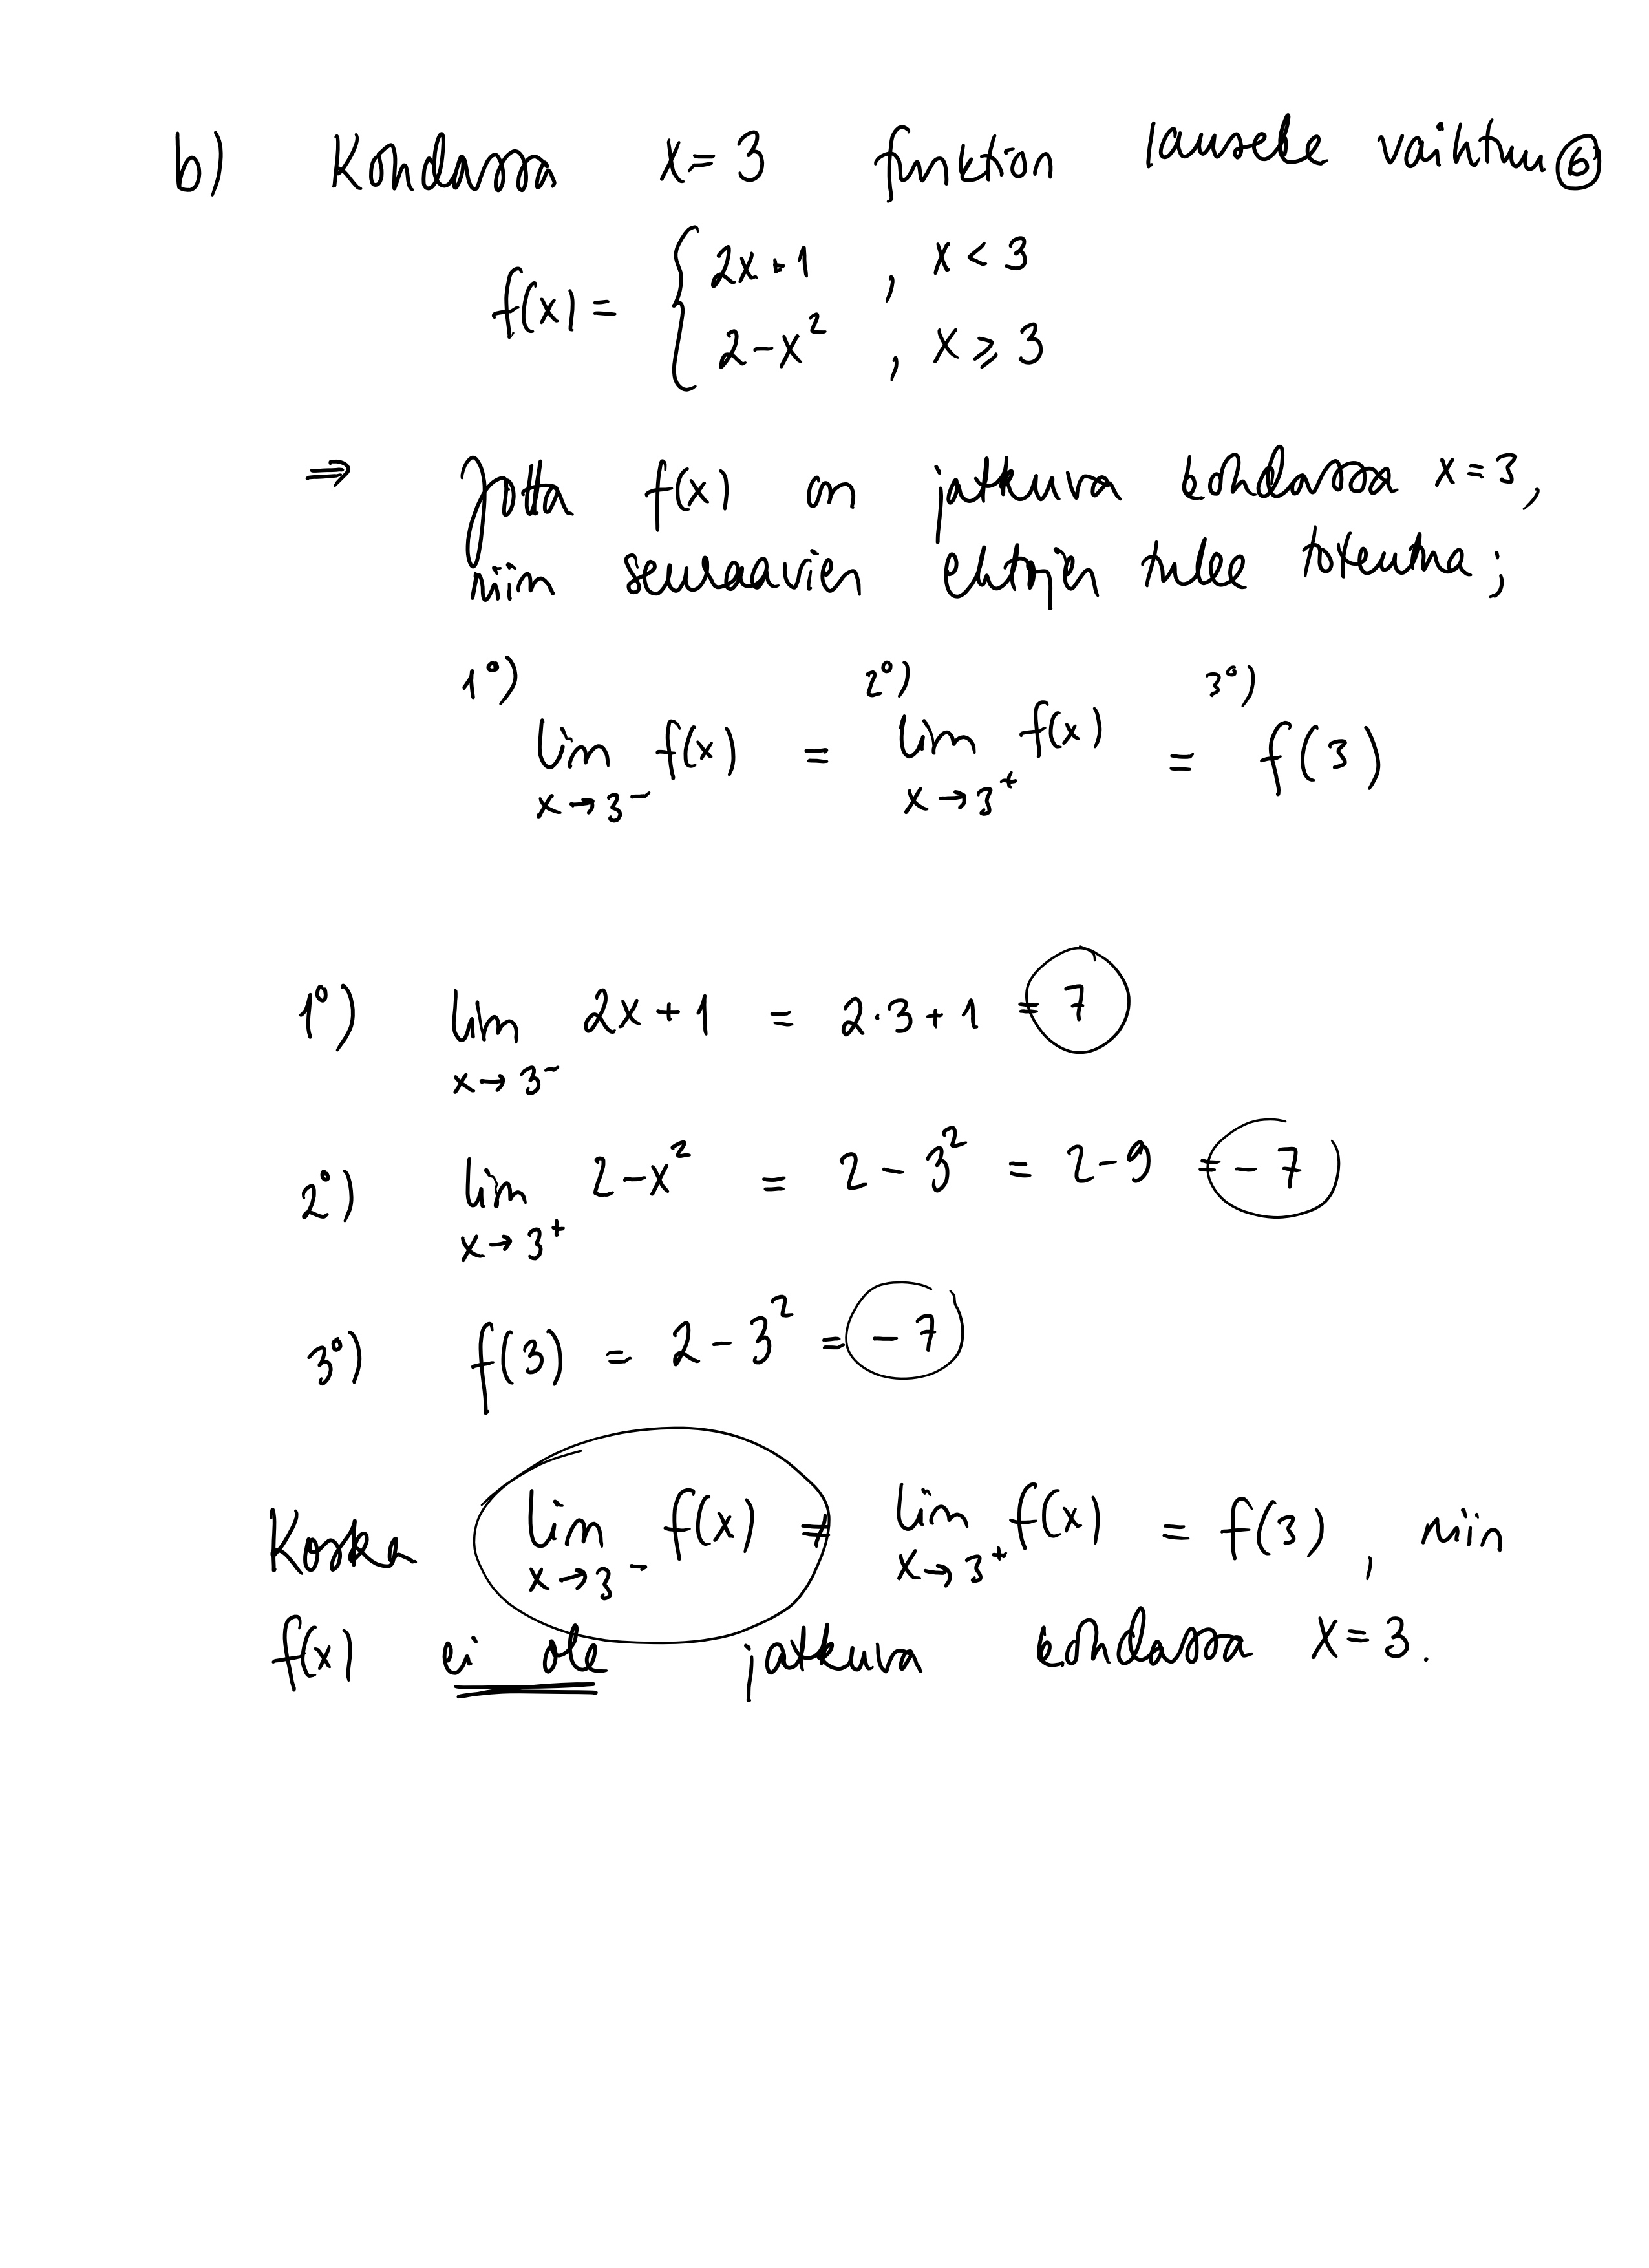 b) Kohdassa x = 3 funktion lauseke vaihtuu ⑥
f(x) = { 2x + 1 , x < 3
2 - x² , x ≥ 3
⇒ Jotta f(x) on jatkuva kohdassa x = 3,
niin seuraavien ehtojen tulee toteutua;
1°) 2°) 3°)
lim f(x) = lim f(x) = f(3)
x→3⁻ x→3⁺
1°) lim 2x + 1 = 2·3 + 1 = 7
x→3⁻
2°) lim 2 - x² = 2 - 3² = 2 - 9 = -7
x→3⁺
3°) f(3) = 2 - 3² = -7
Koska lim f(x) ≠ lim f(x) = f(3), niin
x→3⁻ x→3⁺
f(x) ei ole jatkuva kohdassa x = 3.